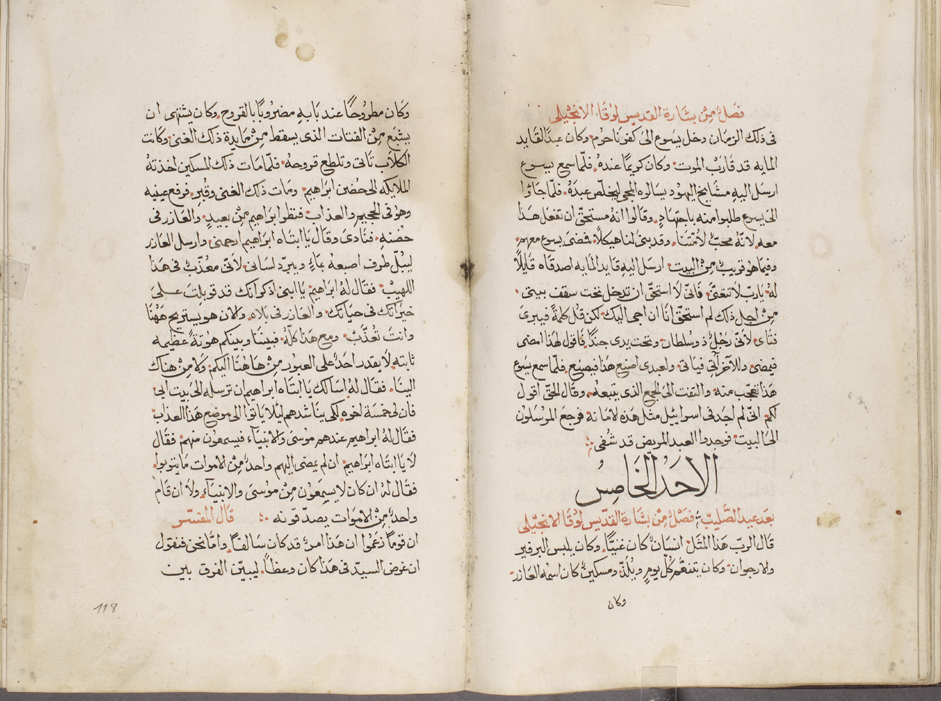 فصلٌ مِنْ بشارة القديس لوقا الانجيلي
في ذلك الزمان دخل يسوع الى كفرناحوم وكان عبدٌ لقايد
المايه قد قارب الموت وكان كريمًا عندهُ فلمَّا سمع بيسوع
ارسل اليهِ مشايخ اليهود يسالوهُ المجي ليخلّص عبدهُ فلمَّا جاوا
الى يسوع طلبوا منه باجتهادٍ وقالوا انهُ مستحقٌ ان تفعل هذا
معه لانهُ محبٌ لامّتنا وقد بنى لنا هيكلًا فمضى يسوع معهم
وفيما هو قريبٌ مِنْ البيت ارسل اليهِ قايد المايه اصدقاه قايلًا
لهُ يا ربّ لا تتعنّى فانّي لا استحقّ ان تدخل تحت سقف بيتي
مِنْ اجل ذلك لم استحقّ انا ان اجي اليك لكن قُل كلمةً فيبرى
فتاي لانّي رجلٌ ذو سلطان وتحت يدي جندٌ فاقول لهذا امضى
فيمضي وللاخر اتى فياتي ولعبدي اصنع هذا فيصنع فلمّا سمع يسوع
هذا تعجّب منه والتفت الى الجمع الذي يتبعه وقال الحق اقول
لكم انّي لم اجد في اسراييل مثل هذه الامانه فرجع المرسلون
الى البيت فوجدوا العبد المريض قد شُفي
الاحَد الخامِسُ
بعد عيد الصّليب فصلٌ مِنْ بشارة القدّيس لوقا الانجيلي
قال الربّ هذا المثل انسانٌ كان غنيًّا وكان يلبس البرفير
والارجوان وكان يتنعّم كُل يومٍ ويلذّ ومسكينٌ كان اسمه العازر
وكان
وكان مطروحًا عند بابهِ مضروبًا بالقروح وكان يشتهي ان
يشبع مِنْ الفتات الذي يسقط مِنْ مايدة ذلك الغني وكانت
الكلاب تاتي وتلطع قروحهُ فلمّا مات ذلك المسكين اخذتهُ
الملايكه الى حضن ابراهيم ومات ذلك الغنى وقُبر فرفع عينيه
وهو في الجحيم والعذاب فنظر ابراهيم مِنْ بعيدٍ والعازر في
حضنه فنادى وقال يا ابتاه ابراهيم ارحمني وارسل العازر
ليبُلّ طرف اصبعهُ بماءٍ ويبرد لساني لانّي معُذّب في هذا
اللهيب فقال لهُ ابراهيم يا ابني اذكر انك قد قوبلت على
خيراتك في حياتك والعازر في بلاه والان هو يستريح ههُنا
وانت تعُذّب ومع هذا كلّهُ فبيننا وبينكم هوتةٌ عظيمه
ثابته لا يقدر احدٌ على العبور من هاهُنا اليكم ولا مِنْ هناك
الينا فقال لهُ اسالك يا ابتاه ابراهيم ان ترسله الى بيت ابي
فان لي خمسة اخوه لكى يناشدهم ليلا ياتوا الى موضع هذا العذاب
فقال لهُ ابراهيم عندهم موسى والانبياء فيسمعون منهم فقال
لا يا ابتاه ابراهيم ان لم يمضى اليهم واحدٌ مِنْ الاموات ما يتوبوا
فقال لهُ ان كان لا يسمعون مِنْ موسى والانبياء ولا ان قام
واحدٌ مِنْ الاموات يصدّقونه قال المفسّر
ان قومًا زعموا ان هذا امرٌ قد كان سالفًا وامّا نحن فنقول
ان غرض السيّد في هذا كان وعظًا ليبيّن الفرق بين
118